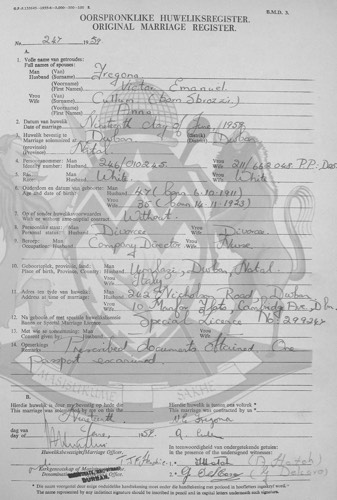 B.M.D. 8.
OORSPRONKLIKE HUWELIKSREGISTER.
ORIGINAL MARRIAGE REGISTER.
No. 247 1959
A.
1. Volle name van getroudes:
Full names of spouses:
Man (Van)
Husband (Surname) Tregona
(Voorname)
(First Names) Victor Emanuel
Vrou (Van)
Wife (Surname) Cullum (born Sbrozzi)
(Voorname)
(First Names) Anna
2. Datum van huwelik
Date of marriage Nineteenth day of June, 1959.
3. Huwelik bevestig te
Marriage solemnized at Durban (distrik) (District) Durban
(provinsie)
(Province) Natal
4. Persoonsnommer: Man
Identity number: Husband 246/010245 Vrou Wife 211/662048 P.P. Dbn
5. Ras: Man
Race: Husband White Vrou Wife White
6. Ouderdom en datum van geboorte: Man
Age and date of birth: Husband 47 (born 16.10.1911)
Vrou
Wife 35 (born 14.11.1923)
7. Op of sonder huweliksvoorwaardes
With or without ante-nuptial contract Without.
8. Persoonlike staat: Man
Personal status: Husband Divorcee Vrou Wife Divorcee
9. Beroep: Man
Occupation: Husband Company Director Vrou Wife Nurse
10. Geboorteplek, provinsie, land: Man
Place of birth, Province, Country: Husband Umhlali, Durban, Natal
Vrou
Wife Italy
11. Adres ten tyde van huwelik: Man
Address at time of marriage: Husband 242 Nicholson Road, Durban
Vrou
Wife 10, Manfor Flats, Cambridge Ave, Dbn
12. Na gebooie of met spesiale huwelikslisensie
Banns or Special Marriage Licence Special Licence No. 299242
13. Met wie se toestemming: Man
Consent given by: Husband Vrou Wife
14. Opmerkings
Remarks Prescribed documents attained. One
Passport examined.
Hierdie huwelik is deur my bevestig op hede die
This marriage was solemnized by me on this the
Nineteenth
dag van
day of June, 1959.
Huweliksbevestiger/Marriage Officer.
Hierdie huwelik is deur ons voltrek *
This marriage was contracted by us *
V E Tregona
In teenwoordigheid van ondergetekende getuies:
In the presence of the undersigned witnesses:
DURBAN.
* Die name voorgestel deur enige onduidelike handtekening moet onder die handtekening met potlood in hoofletters ingeskryf word.
The name represented by any unlettered signature should be inscribed in pencil and in capital letters underneath such signature.